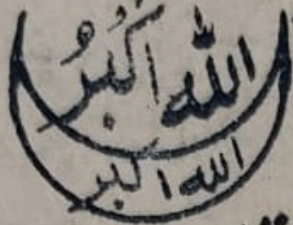 الله اکبرُ
الله اکبر